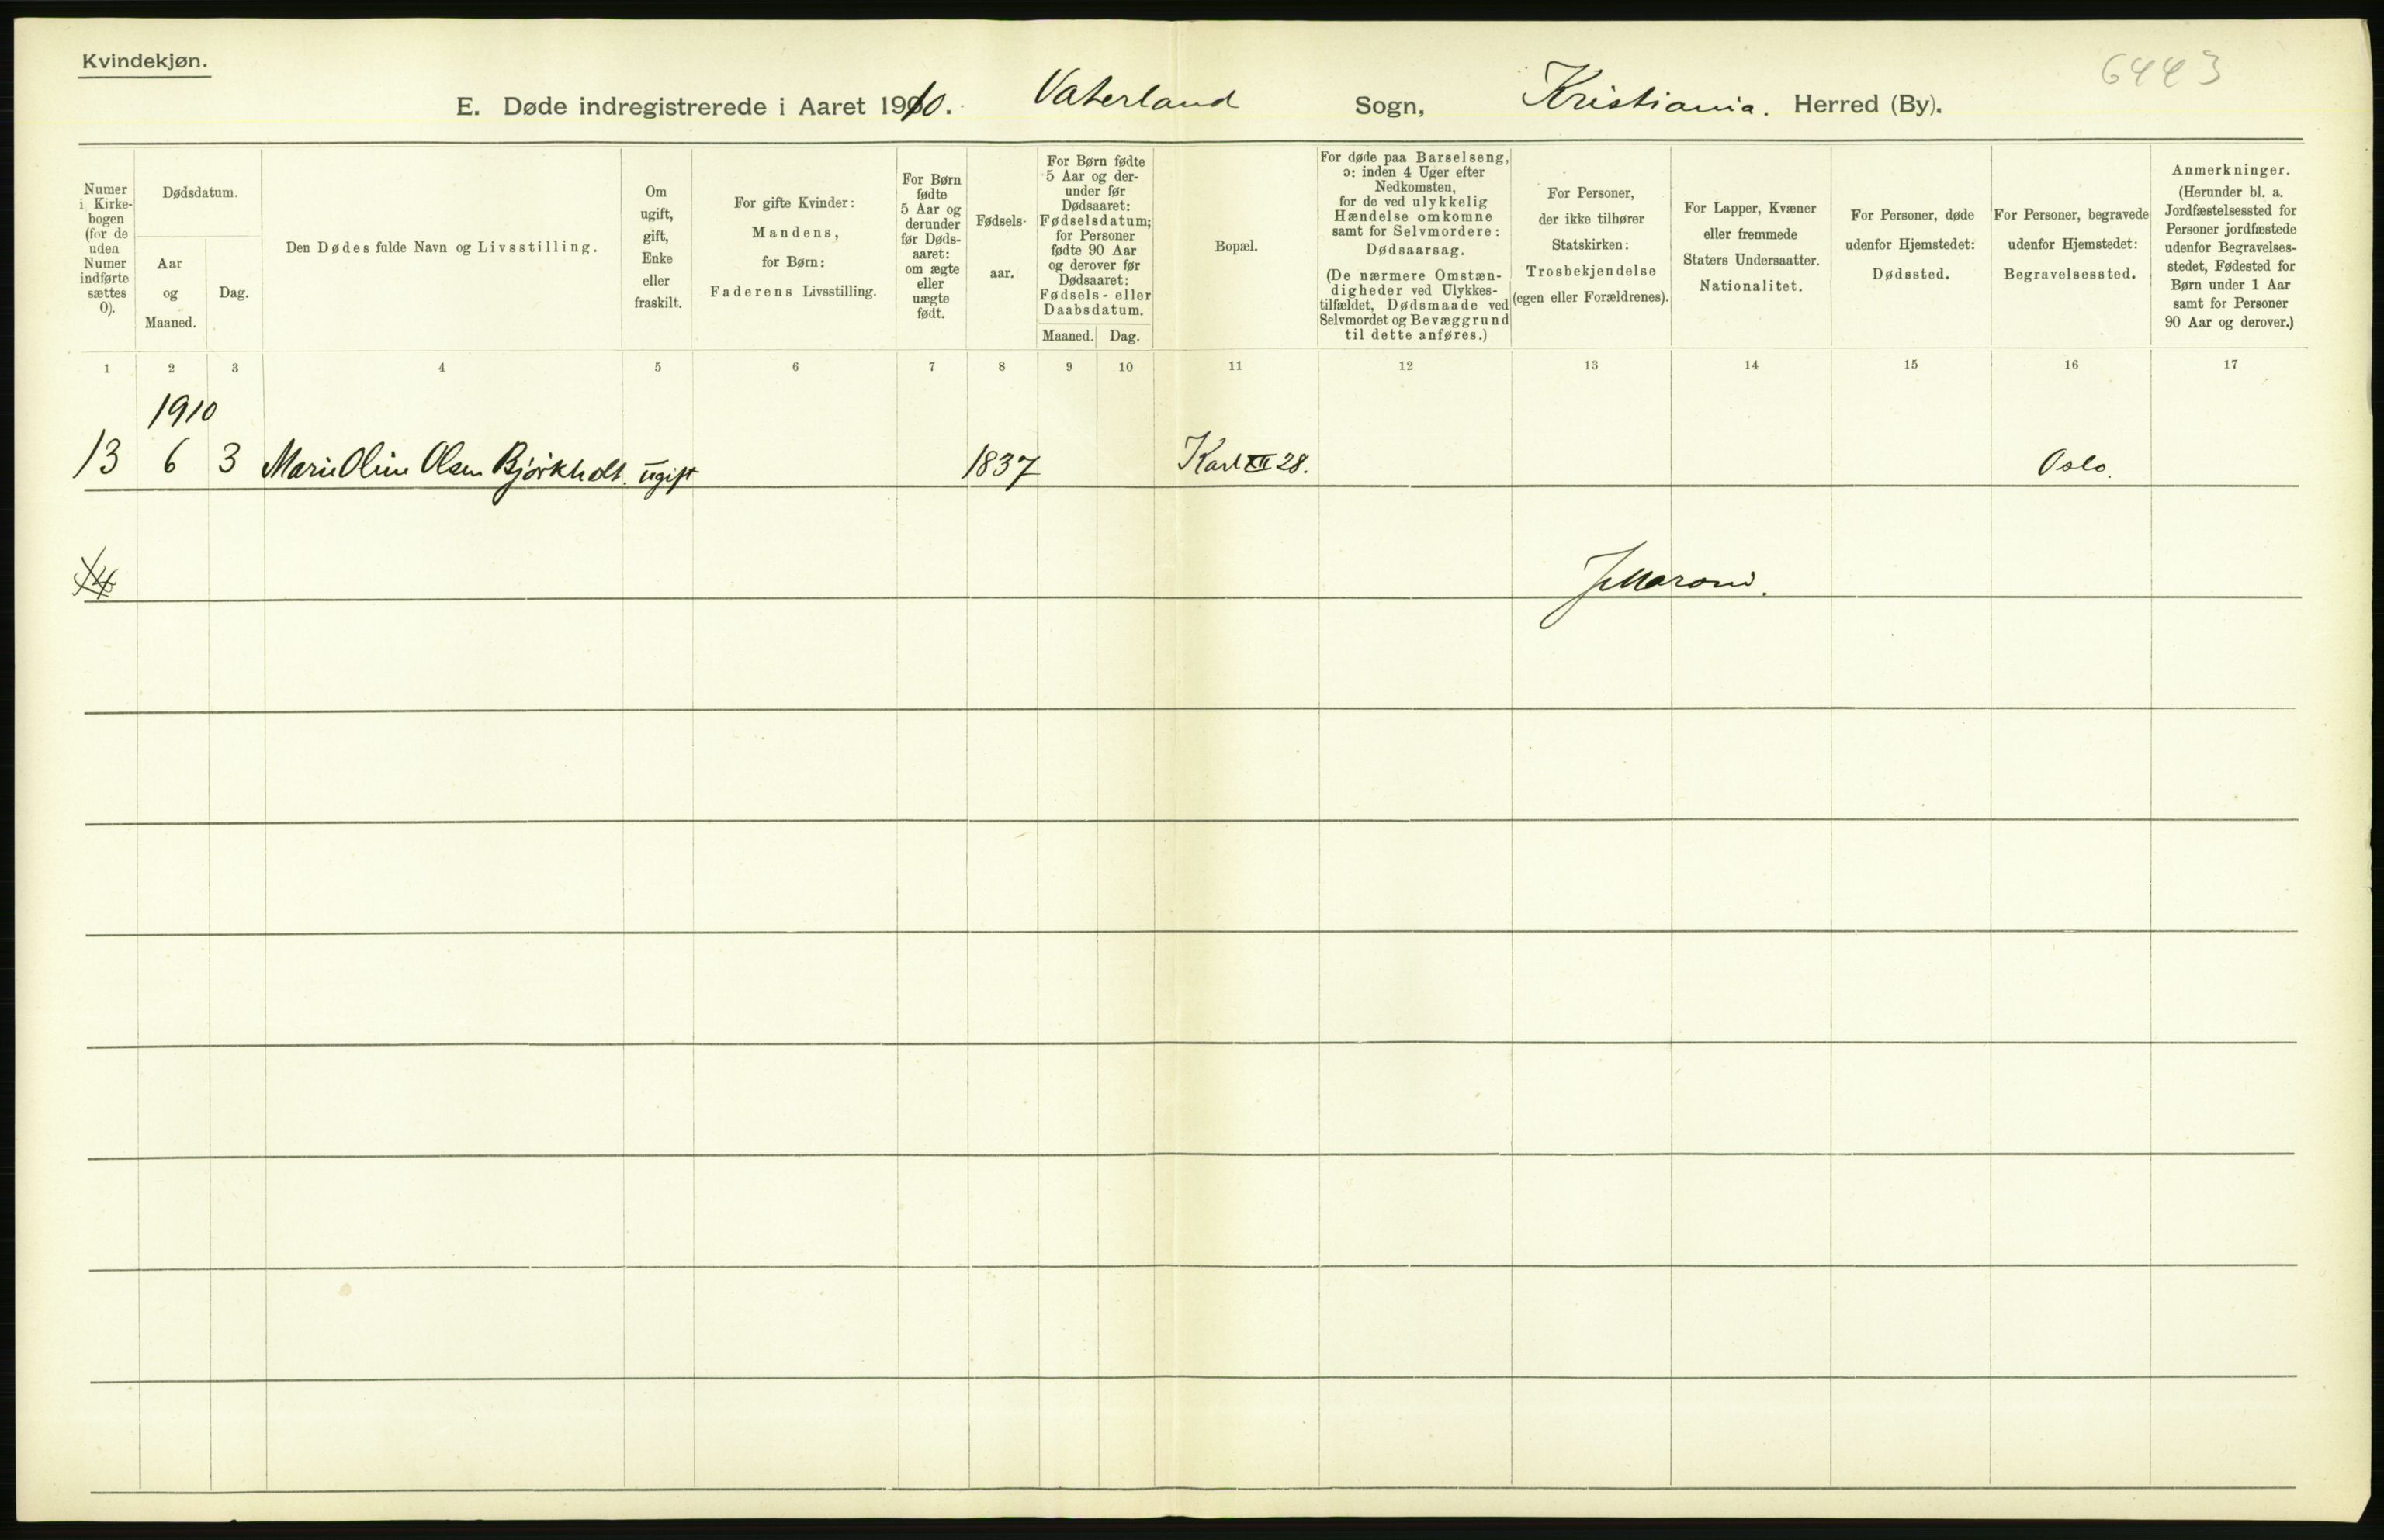 Kvindekjøn.
6443
E. Døde indregistrerede i Aaret 1910. Vaterland Sogn, Kristiania. Herred (By).
Numer
i Kirke-
bogen
(for de
uden
Numer
indførte
sættes
0).
Dødsdatum.
Aar
og
Maaned.
Dag.
Den Dødes fulde Navn og Livsstilling.
Om
ugift,
gift,
Enke
eller
fraskilt.
For gifte Kvinder:
Mandens,
for Børn:
Faderens Livsstilling.
For Børn
fødte
5 Aar og
derunder
før Døds-
aaret:
om ægte
eller
uægte
født.
Fødsels-
aar.
For Børn fødte
5 Aar og der-
under før
Dødsaaret:
Fødselsdatum;
for Personer
fødte 90 Aar
og derover før
Dødsaaret:
Fødsels- eller
Daabsdatum.
Maaned. Dag.
Bopæl.
For døde paa Barselseng,
ɔ: inden 4 Uger efter
Nedkomsten,
for de ved ulykkelig
Hændelse omkomne
samt for Selvmordere:
Dødsaarsag.
(De nærmere Omstæn-
digheder ved Ulykkes-
tilfældet, Dødsmaade ved
Selvmordet og Bevæggrund
til dette anføres.)
For Personer,
der ikke tilhører
Statskirken:
Trosbekjendelse
(egen eller Forældrenes).
For Lapper, Kvæner
eller fremmede
Staters Undersaatter.
Nationalitet.
For Personer, døde
udenfor Hjemstedet:
Dødssted.
For Personer, begravede
udenfor Hjemstedet:
Begravelsessted.
Anmerkninger.
(Herunder bl. a.
Jordfæstelsessted for
Personer jordfæstede
udenfor Begravelses-
stedet, Fødested for
Børn under 1 Aar
samt for Personer
90 Aar og derover.)
1 2 3 4 5 6 7 8 9 10 11 12 13 14 15 16 17
1910
13 6 3 Marie Oline Olsen Bjørkholt. ugift 1837 Karl XII 28. Oslo.
14
JMaroni.